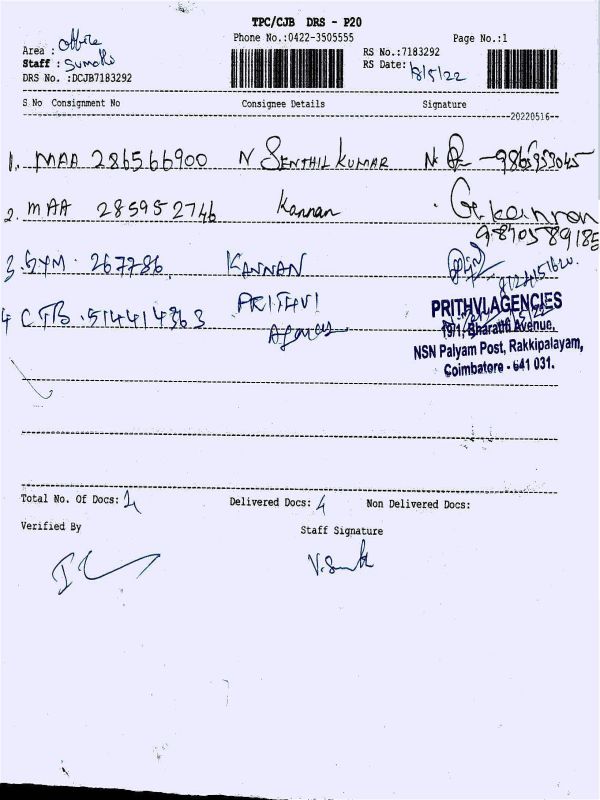 TPC/CJB DRS - P20
Phone No.:0422-3505555 Page No.:1
Area : office
Staff :
DRS No. :DCJB7183292
RS No.:7183292
RS Date: 18/5/22
S No Consignment No Consignee Details Signature
--20220516--
1. MAA 286566900 N SENTHIL KUMAR
2. MAA 285952746 Kannan Gr. kannan
9870589186
3. SYM. 267786 KANNAN
4 CTB. 514414363 PRITHVI
Agencies
PRITHVI AGENCIES
19/1, Bharathi Avenue,
NSN Palyam Post, Rakkipalayam,
Coimbatore - 641 031.
Total No. Of Docs: Delivered Docs: 4 Non Delivered Docs:
Verified By Staff Signature